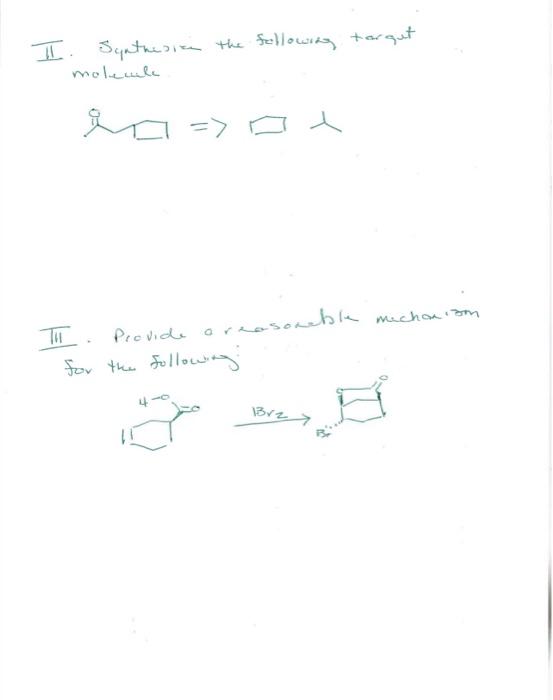 II. Synthesize the following target
molecule.
O
=>
III. Provide a reasonable mechanism
for the following:
H-O
=O
Br2
O
Br